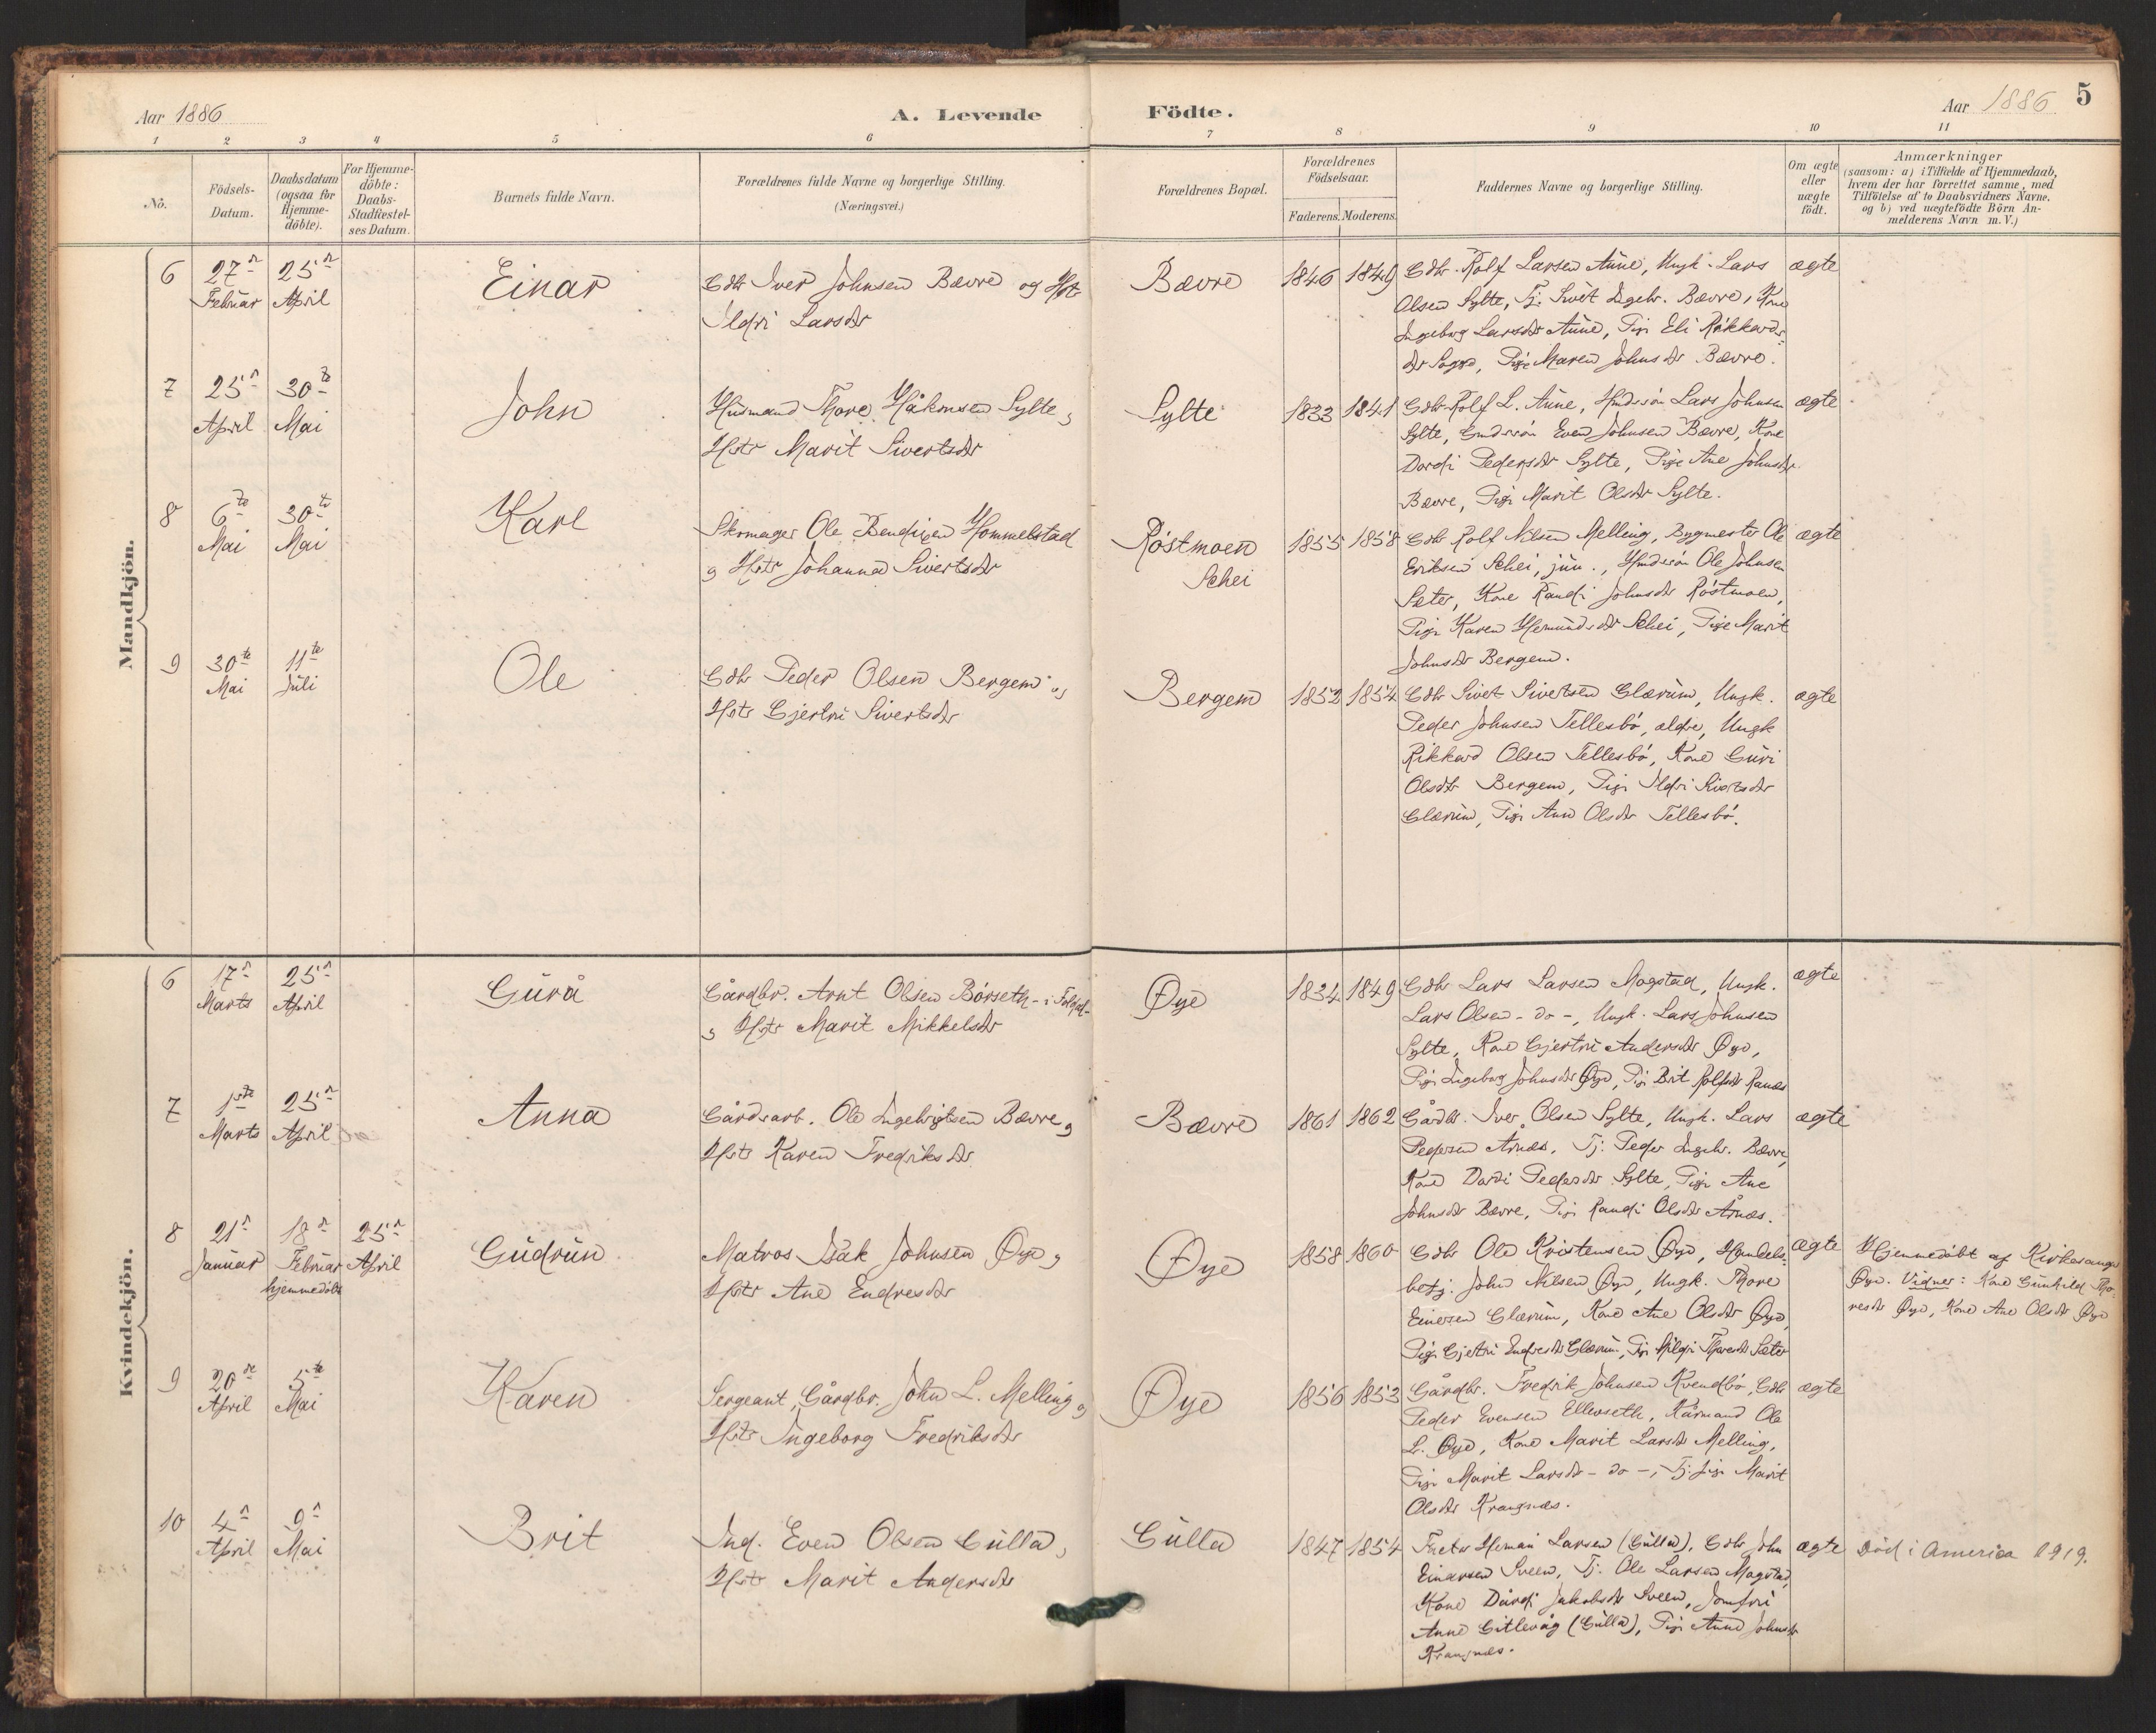 Aar 1886
A. Levende Födte.
Aar 1886 5
1 2 3 4 5 6 7 8 9 10 11
No.
Födsels-Datum.
Daabsdatum (ogsaa for Hjemme-döbte).
For Hjemme-döbte: Daabs-Stadfæstel-ses Datum.
Barnets fulde Navn.
Forældrenes fulde Navne og borgerlige Stilling.
(Næringsvei.)
Forældrenes Bopæl.
Forældrenes Födselsaar.
Faderens. Moderens.
Faddernes Navne og borgerlige Stilling.
Om ægte eller uægte födt.
Anmærkninger
(saasom: a) i Tilfælde af Hjemmedaab,
hvem der har forrettet samme, med
Tilföielse af to Daabsvidners Navne.
og b) ved uægtefödte Börn An-
melderens Navn m.V.)
Mandkjön.
6 27de Februar 25de April Einar
Gdbr Iver Johnsen Bævre og Hstr
Ildri Larsdtr
Bævre 1846 1849
Gdbr. Rolf Larsen Aune, Ungk. Lars
Olsen Sylte, Tj. Sivert Ingebr. Bævre, Kone
Ingeborg Larsdtr Aune, Pige Eli Rikkards-
dtr, Pige Maren Johnsdtr Bævre.
ægte
7 25de April 30te Mai John
Husmand Thore Håkonsen Sylte og
Hstr Marit Sivertsdtr
Sylte 1833 1841
Gdbr Rolf L. Aune, Lars Johnsen
Sylte, Even Johnsen Bævre, Kone
Dordi Pedersdtr Sylte, Pige Ane Johnsdtr
Bævre, Pige Marit Olsdtr Sylte.
ægte
8 6te Mai 30te Mai Karl
Skomager Ole Bendixen Hommelstad
og Hstr Johanna Sivertsdtr
Röstmoen
Schei
1855 1858
Gdbr Rolf Nilsen Melling, Bygmester Ole
Eriksen Schei, jun., Ole Johnsen
Sæter, Kone Randi Johnsdtr Röstmoen,
Pige Karen Schei, Pige Marit
Johnsdtr Bergem.
ægte
9 30te Mai 11te Juli Ole
Gdbr Peder Olsen Bergem og
Hstr Gjertru Sivertsdtr
Bergem 1852 1854
Gdbr Sivert Sivertsen Glærum, Ungk.
Peder Johnsen Tellesbö, ældre, Ungk
Rikkard Olsen Tellesbö, Kone Guri
Olsdtr Bergem, Pige Ildri Sivertsdtr
Glærum, Pige Ane Olsdtr Tellesbö.
ægte
Kvindekjön.
6 17de Marts 25de April Gurå
Gårdbr. Arnt Olsen Börseth
og Hstr Marit Mikkelsdtr
Øye 1834 1849
Gdbr Lars Larsen Mogstad, Ungk.
Lars Olsen - do -, Ungk. Lars Johnsen
Sylte, Kone Gjertru Andersdtr Øye,
Pige Ingeborg Johnsdtr Øye, Pige Brit Rolfsdtr Ranes
ægte
7 1ste Marts 25de April Anna
Gårdsarb. Ole Ingebrigtsen Bævre og
Hstr Karen Fredriksdtr
Bævre 1861 1862
Gårdbr. Iver Olsen Sylte, Ungk. Lars
Pedersen Årnes, Tj. Peder Ingebr. Bævre,
Kone Dordi Pedersdtr Sylte, Pige Ane
Johnsdtr Bævre, Pige Randi Olsdtr Årnæs.
ægte
8 21de Januar 18de Februar hjemmedöbt 25de April Gudrun
Matros Isak Johnsen Øye og
Hstr Ane Endresdtr
Øye 1858 1860
Gdbr Ole Kristensen Øye, Handels-
betj. John Nilsen Øye, Ungk. Thore
Einersen Glærum, Kone Ane Olsdtr Øye,
Pige Gjertru Endresdtr Glærum, Pige Thoresdtr Sæter
ægte
Hjemmedöbt af Kirkesanger
Øye. Vidner: Kone Gunhild Tho-
resdtr Øye, Kone Ane Olsdtr Øye
9 20de April 5te Mai Karen
Sergeant, Gårdbr. John L. Melling og
Hstr Ingeborg Fredriksdtr
Øye 1856 1853
Gårdbr. Fredrik Johnsen Kvendbö, Gdbr
Peder Evensen Ellevseth, Kårmand Ole
L. Øye, Kone Marit Larsdtr Melling,
Pige Marit Larsdtr - do -, Tj. pige Marit
Olsdtr Krangnæs.
ægte
10 4de April 9de Mai Brit
Ind. Even Olsen Gulla,
Hstr Marit Andersdtr
Gulla 1847 1854
Herman Larsen (Gulla), Gdbr John
Einarsen Sveen, Tj. Ole Larsen Mogstad,
Kone Dårdi Jakobsdtr Sveen, Jomfru
Anne Gitlevåg (Gulla), Pige Anne Johnsdtr
Krangnæs.
ægte
Död i America 1919.